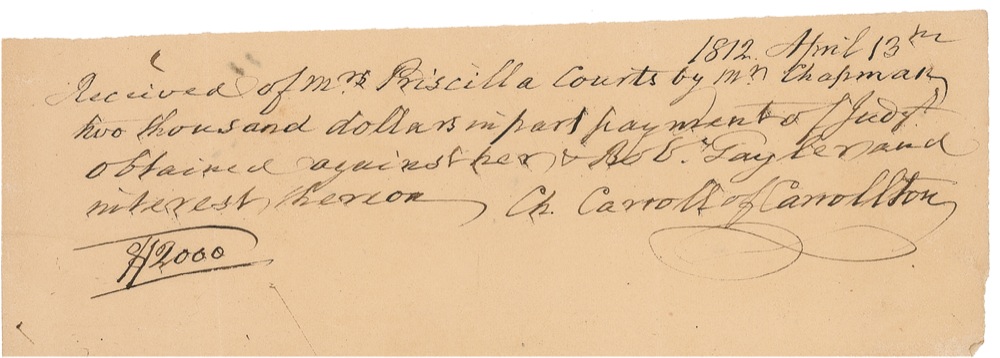 1812. April 13th
Received of Mrs Priscilla Courts by Mr Chapman
two thousand dollars in part payment of Judt
obtained against her & Robt. Tayler and
interest thereon Ch. Carroll of Carrollton
$2000